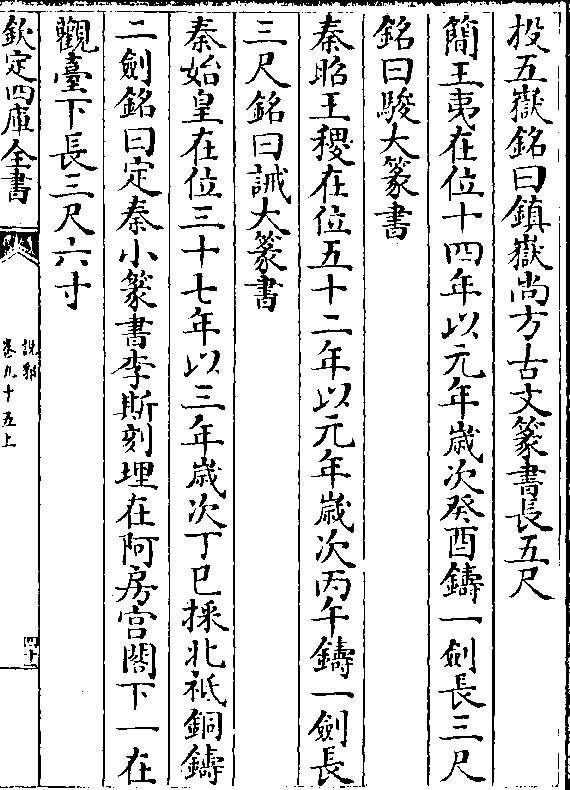 投五嶽銘曰鎮嶽尚方古文篆書長五尺
簡王夷在位十四年以元年歲次癸酉鑄一劍長三尺
銘曰駿大篆書
秦昭王稷在位五十二年以元年歲次丙午鑄一劍長
三尺銘曰誡大篆書
秦始皇在位三十七年以三年歲次丁巳採北祗銅鑄
二劍銘曰定秦小篆書李斯刻埋在阿房宫閣下一在
觀臺下長三尺六寸
欽定四庫全書
說郛
卷九十五上